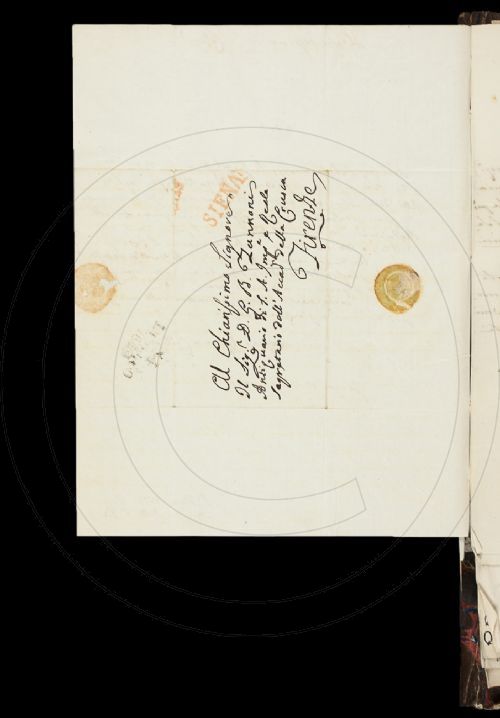 SIENA
Al Chiarissimo Signore
Il Sig.r D. G. B. Zannoni
Antiquario di S. A. Imp.e e Reale
Segretario dell'Accad.a della Crusca
Firenze